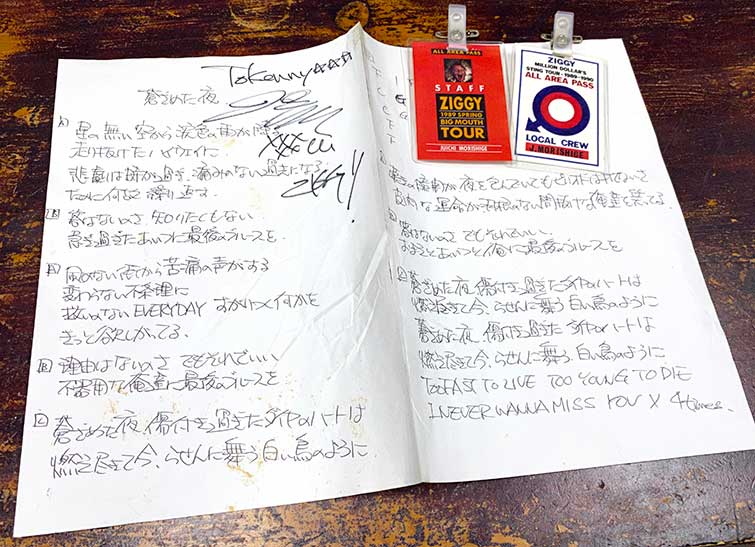 To Kenny
蒼ざめた夜
A 星の無い空から 灰色の雨が降る
走り抜けたハイウェイに
悲劇は 過ぎ、痛みのない過去になる
ために何度 繰り返す
B 答はないのさ 知りたくもない
急ぎ過ぎたあいつに最後のブルースを
A 風のない街から苦痛の声がする
変わらない不条理に
救いのないEVERYDAY すがりつく何かを
きっと欲しがってる。
B 理由はないのさ でもそれでいい
不器用な俺達に最後のブルースを
C 蒼ざめた夜、傷付き過ぎたダイヤのハートは
燃え尽きて今、らせんに舞う白い鳥のように
ZIGGY!
ALL AREA PASS
STAFF
ZIGGY
1989 SPRING
BIG MOUTH
TOUR
JUICHI MORISHIGE
ZIGGY
MILLION DOLLAR'S
STING TOUR・1989-1990
ALL AREA PASS
LOCAL CREW
J.MORISHIGE
が夜を包んでも
運命が 俺達を
答はないのさ でもそれでいい
あいつと俺に最後のブルースを
C 蒼ざめた夜、傷付き過ぎたダイヤのハートは
燃え尽きて今、らせんに舞う白い鳥のように
蒼ざめた夜、傷付き過ぎたダイヤのハートは
燃え尽きて今、らせんに舞う白い鳥のように
TOO FAST TO LIVE TOO YOUNG TO DIE
I NEVER WANNA MISS YOU X 4times.